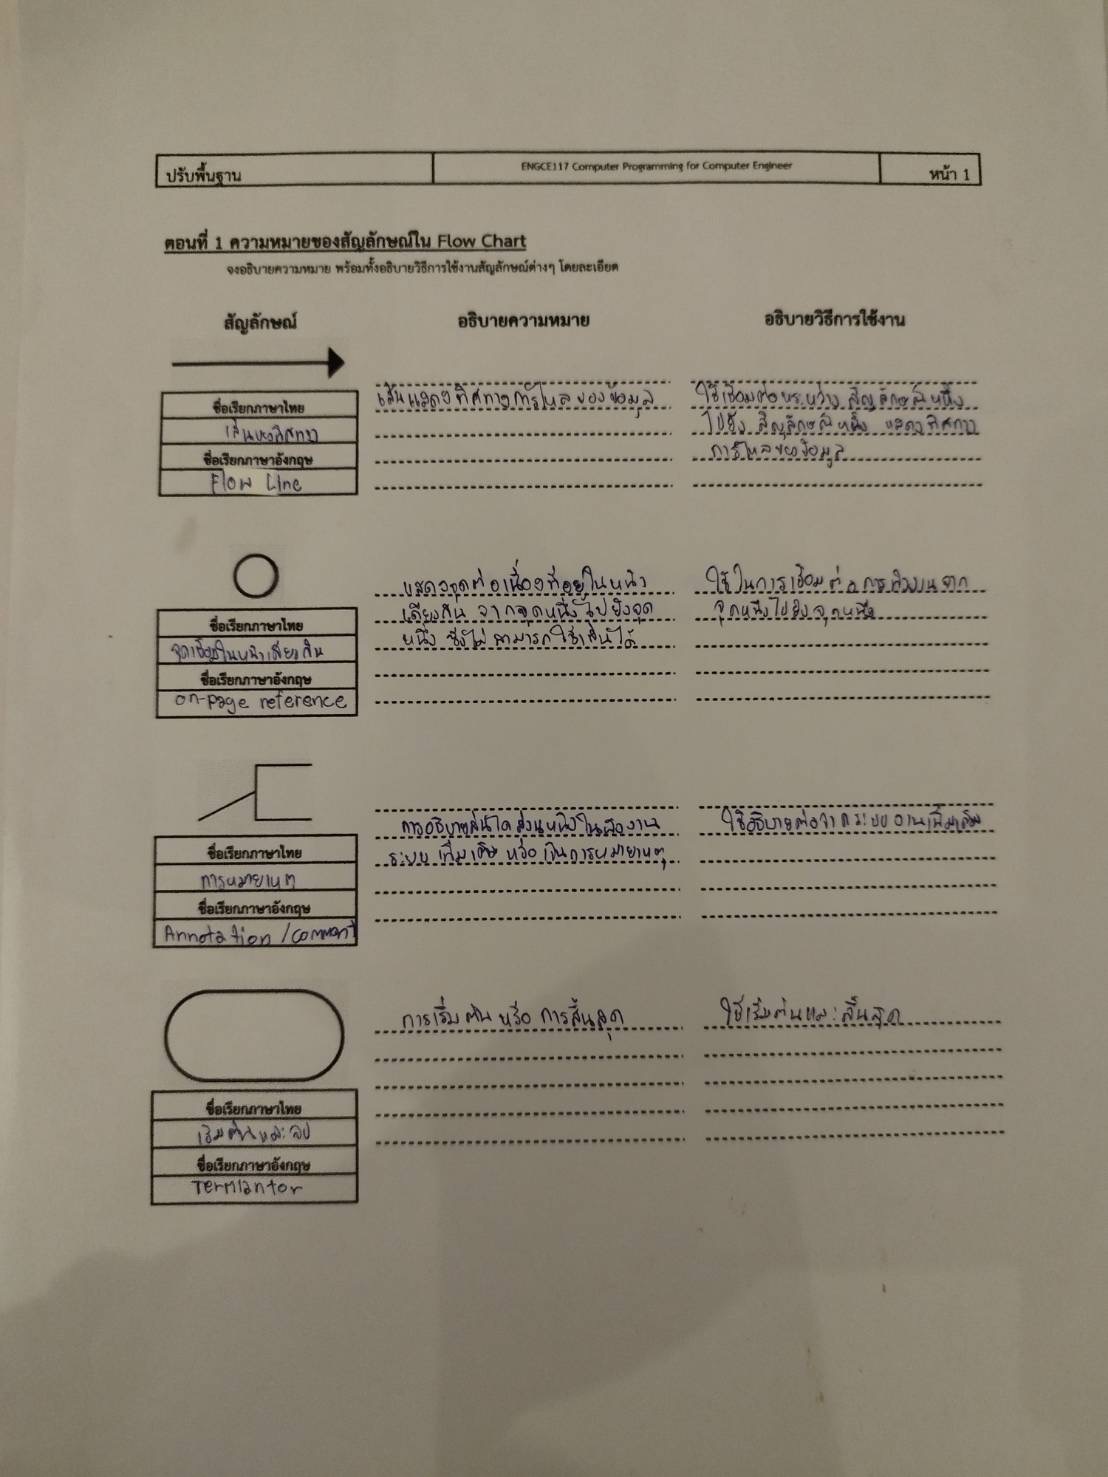 ปรับพื้นฐาน ENGCE117 Computer Programming for Computer Engineer หน้า 1
ตอนที่ 1 ความหมายของสัญลักษณ์ใน Flow Chart
จงอธิบายความหมาย พร้อมทั้งอธิบายวิธีการใช้งานสัญลักษณ์ต่างๆ โดยละเอียด
สัญลักษณ์ อธิบายความหมาย อธิบายวิธีการใช้งาน
ชื่อเรียกภาษาไทย
ชื่อเรียกภาษาอังกฤษ
Flow Line
เส้นแสดงทิศทางการไหลของข้อมูล
ใช้เชื่อมต่อระหว่าง สัญลักษณ์หนึ่ง
ไปยัง สัญลักษณ์หนึ่ง แสดงทิศทาง
การไหลของข้อมูล
ชื่อเรียกภาษาไทย
จุดเชื่อมในหน้าเดียวกัน
ชื่อเรียกภาษาอังกฤษ
on-page reference
แสดงจุดต่อเนื่องที่อยู่ในหน้า
เดียวกัน จากจุดหนึ่งไปยังจุด
หนึ่ง ซึ่งไม่สามารถใช้เส้นได้
ใช้ในการเชื่อมต่อการทำงานจาก
จุดหนึ่งไปยังจุดหนึ่ง
ชื่อเรียกภาษาไทย
การหมายเหตุ
ชื่อเรียกภาษาอังกฤษ
Annotation /comment
การอธิบาย ส่วนหนึ่งใน
ระบบ เพิ่มเติม หรือ เป็นการหมายเหตุ
ใช้อธิบาย ระบบงานเพิ่มเติม
ชื่อเรียกภาษาไทย
ชื่อเรียกภาษาอังกฤษ
Termiantor
การเริ่มต้น หรือ การสิ้นสุด
ใช้เริ่มต้นและสิ้นสุด